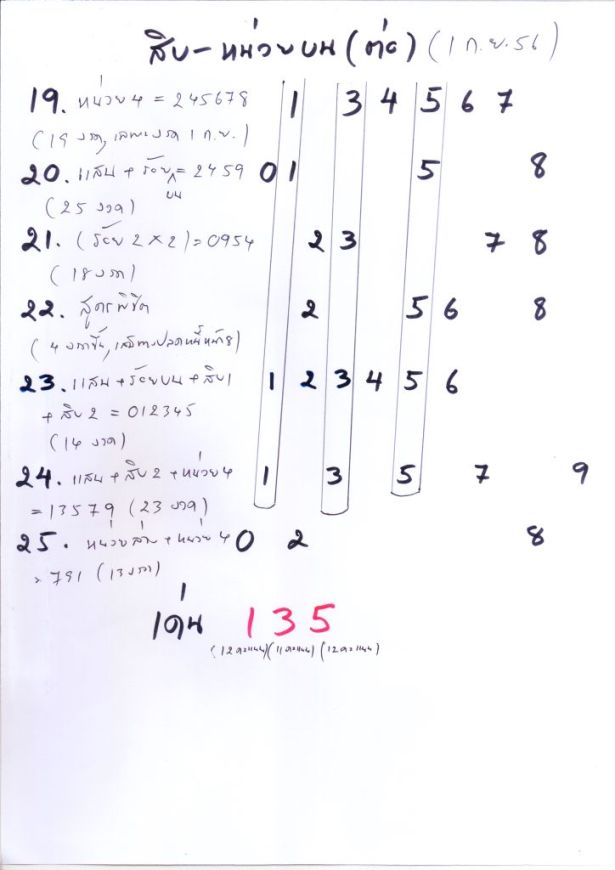 สิบ-หน่วยบน (ต่อ) (1 ก.ย. 56)
19. หน่วย 4 = 245678 1 3 4 5 6 7
(19 งวด, เฉพาะงวด 1 ก.ย.)
20. แสน + ร้อยบน = 2459 0 1 5 8
(25 งวด)
21. (ร้อย 2 x 2) = 0954 2 3 7 8
(18 งวด)
22. สูตรพิชิต 2 5 6 8
(4 งวดขึ้น,
23. แสน + ร้อยบน + สิบ 1 1 2 3 4 5 6
+ สิบ 2 = 012345
(14 งวด)
24. แสน + สิบ 2 + หน่วย 4 1 3 5 7 9
= 13579 (23 งวด)
25. หน่วยล่าง + หน่วย 4 0 2 8
= 791 (13 งวด)
เด่น 1 3 5
(12 คะแนน) (11 คะแนน) (12 คะแนน)